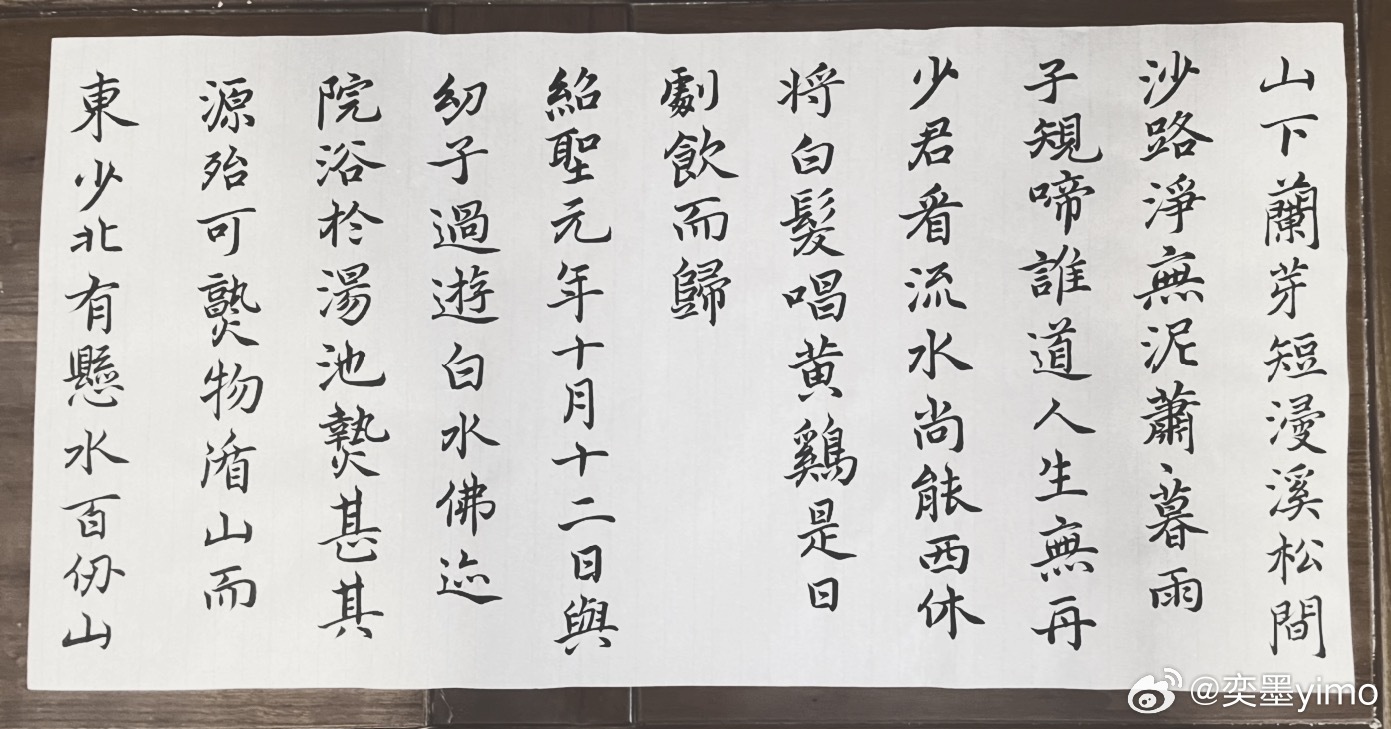 山下蘭芽短浸溪松間
沙路淨無泥蕭〻暮雨
子規啼誰道人生無再
少君看流水尚能西休
将白髮唱黄鷄是日
劇飲而歸
紹聖元年十月十二日與
幼子過遊白水佛迹
院浴於湯池熱甚其
源殆可熟物循山而
東少北有懸水百仞山
@奕墨yimo